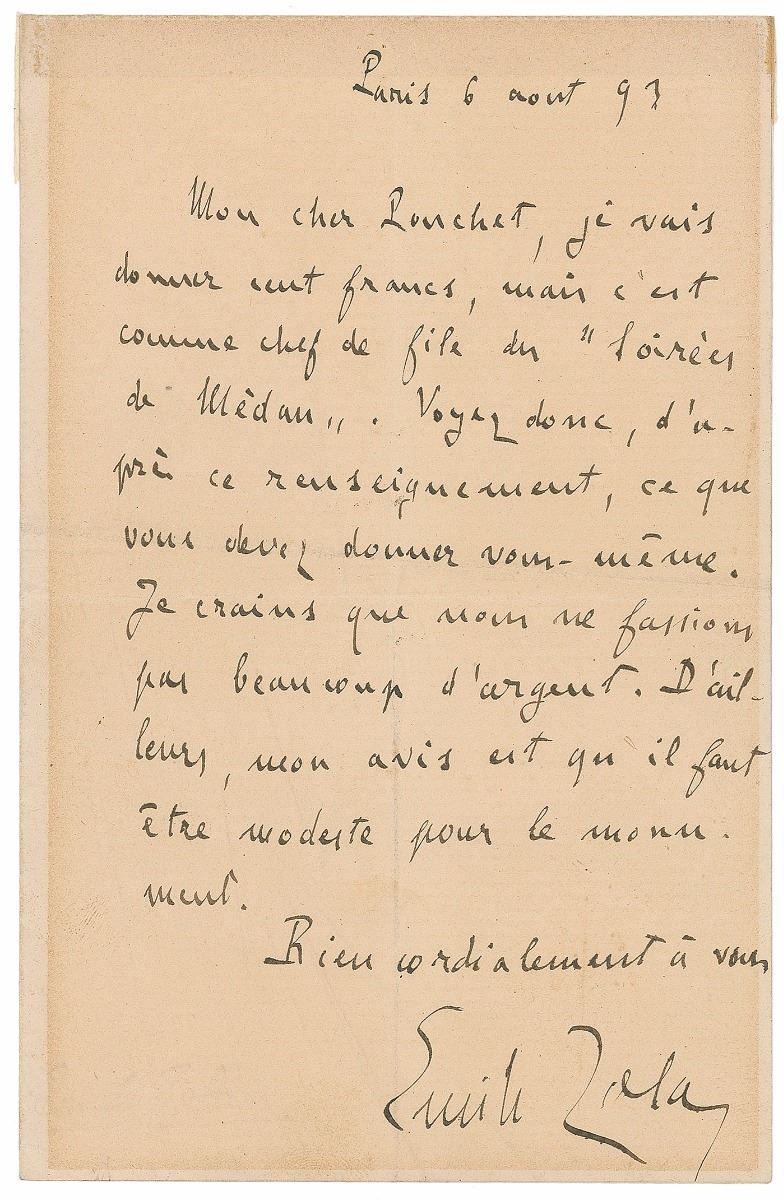 Paris 6 aout 93
Mon cher Pouchet, je vais
donner cent francs, mais c'est
comme chef de file des "Soirées
de Médan„. Voyez donc, d'a-
près ce renseignement, ce que
vous devez donner vous-même.
Je crains que nous ne fassions
pas beaucoup d'argent. D'ail-
leurs, mon avis est qu'il faut
être modeste pour le monu-
ment.
Bien cordialement à vous
Emile Zola